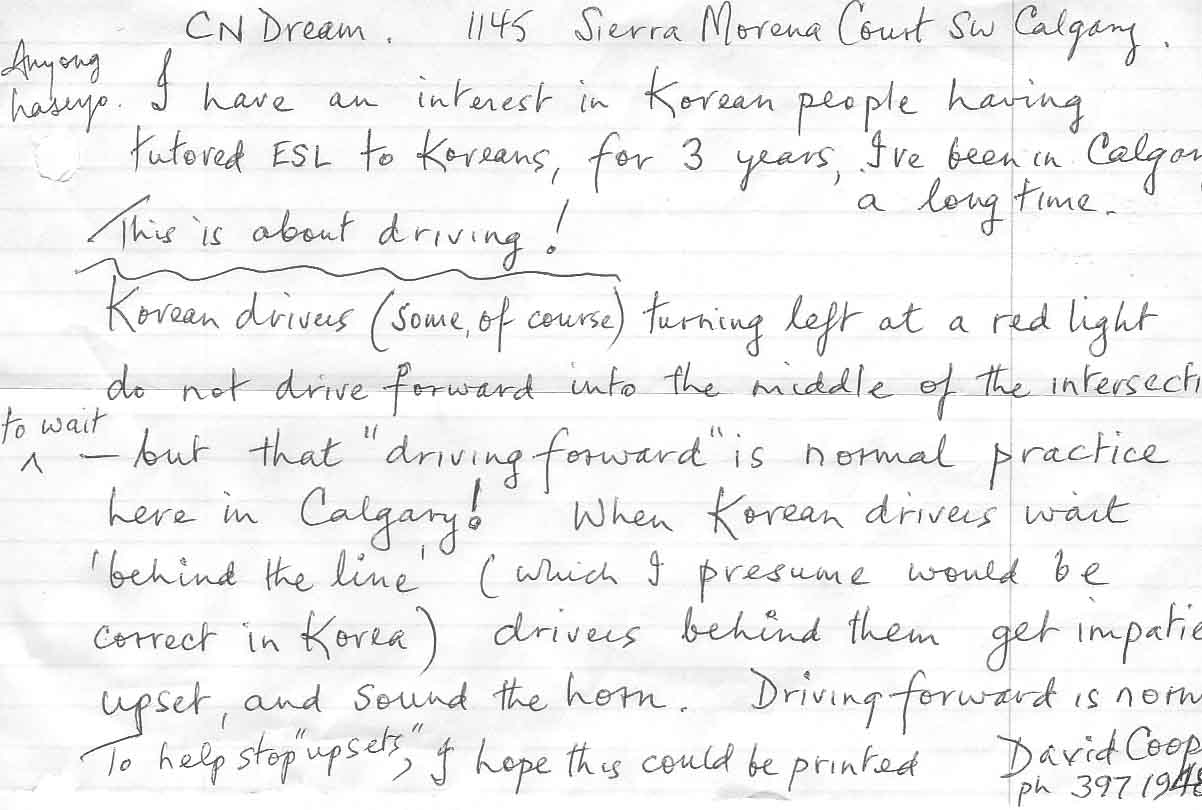 CN Dream. 1145 Sierra Morena Court SW Calgary.
Anyong
haseyo. I have an interest in Korean people having
tutored ESL to Koreans, for 3 years, I've been in Calgar
a long time.
This is about driving!
Korean drivers (some, of course) turning left at a red light
do not drive forward into the middle of the intersecti
to wait
^ — but that "driving forward" is normal practice
here in Calgary! When Korean drivers wait
'behind the line' (which I presume would be
correct in Korea) drivers behind them get impatie
upset, and sound the horn. Driving forward is norm
To help stop "upsets", I hope this could be printed David Coop
ph 397 19